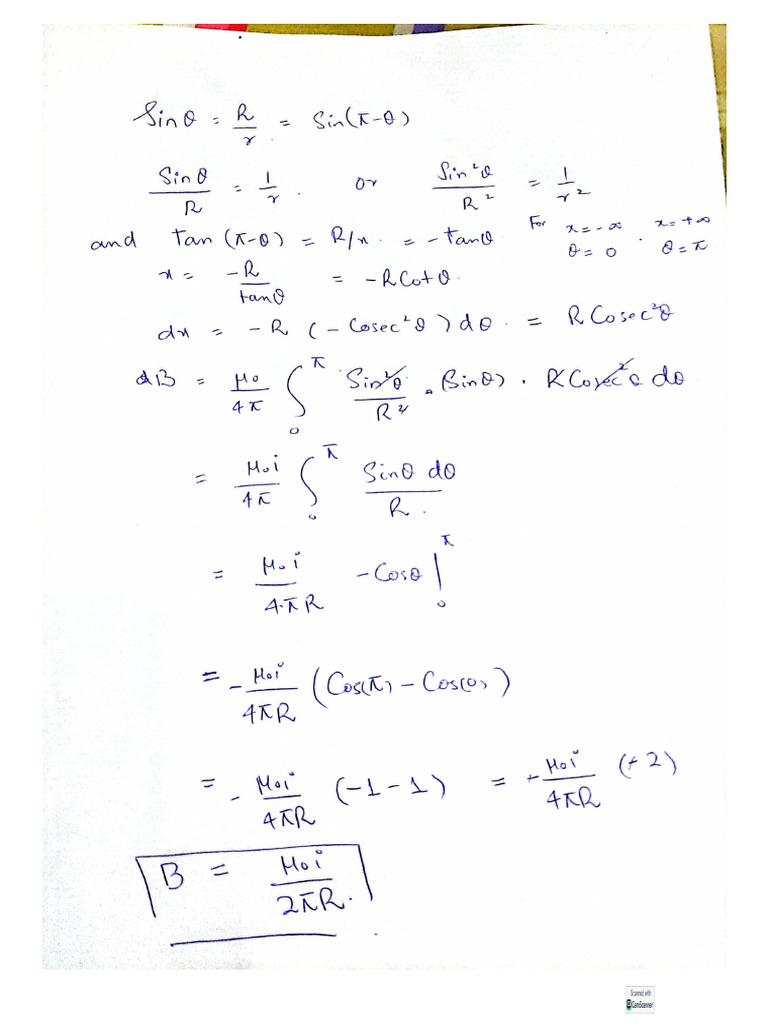 Sinθ = R/r = Sin(π-θ)
Sinθ/R = 1/r . or Sin²θ/R² = 1/r²
and tan(π-θ) = R/x . = -tanθ For x=-∞ . x=+∞
θ=0 θ=π
x = -R/tanθ = -RCotθ.
dx = -R (-Cosec²θ)dθ. = RCosec²θ
dB = μ₀/4π ∫₀^π Sin²θ/R² . (Sinθ) . RCosec²θ dθ
= μ₀i/4π ∫₀^π Sinθ dθ/R.
= μ₀i/4.πR -Cosθ|₀^π
= -μ₀i/4πR (Cos(π) - Cos(0))
= -μ₀i/4πR (-1-1) = +μ₀i/4πR (+2)
B = μ₀i/2πR.
Scanned with
CamScanner